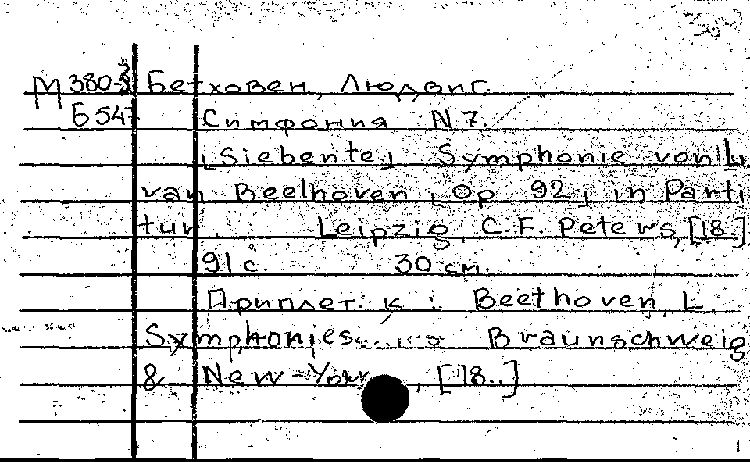 М 380-3 Бетховен, Людвиг.
Б 547 Симфония N 7.
[Siebente] Symphonie von L.
van Beethoven, Op 92, in Parti
tur. Leipzig, C. F. Peters, [18..]
91 с 30 см.
Приплет. к: Beethoven, L.
Symphonies... Braunschweig
& New-York, [18..]